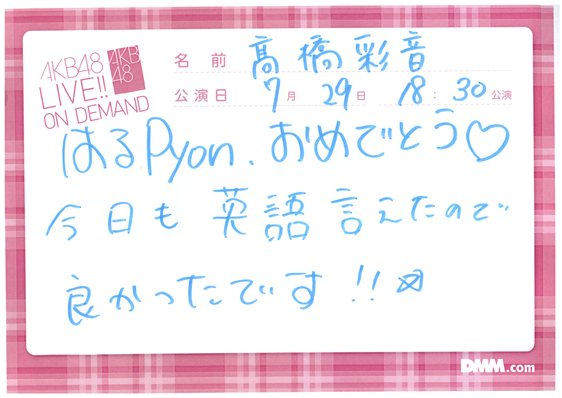 AKB48
LIVE!!
ON DEMAND
AKB
48
名前 髙橋彩音
公演日 7月 29日 18:30公演
はるPyon、おめでとう♡
今日も英語言えたので
良かったです!!☆
DMM.com